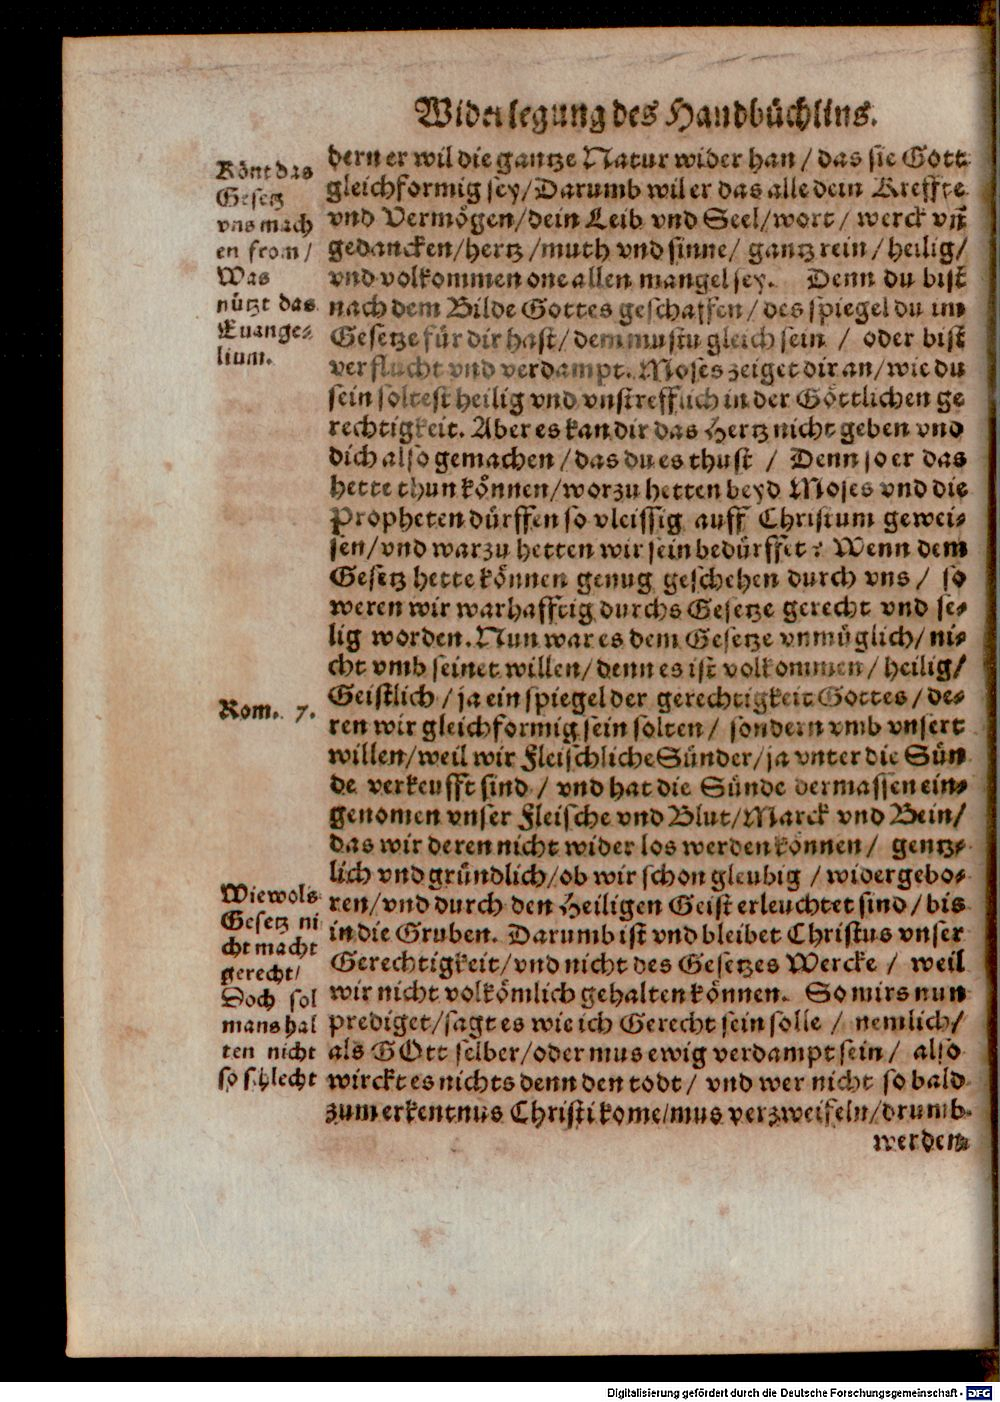 Widerlegung des Handbüchlins.
Könt das
Gesetz
vns mach
en from/
Was
nützt das
Euange⸗
lium.
dern er wil die gantze Natur wider han / das sie Gott
gleichformig sey/Darumb wil er das alle dein Kreffte
vnd Vermögen/dein Leib vnd Seel/wort/ werck vñ
gedancken/hertz /muth vnd sinne/ gantz rein/heilig/
vnd volkommen one allen mangel sey. Denn du bist
nach dem Bilde Gottes geschaffen/des spiegel du im
Gesetze für dir hast/dem mustu gleich sein / oder bist
verflucht vnd verdampt. Moses zeiget dir an/wie du
sein soltest heilig vnd vnstrefflich in der Göttlichen ge
rechtigkeit. Aber es kan dir das Hertz nicht geben vnd
dich also gemachen/das du es thust / Denn so er das
hette thun können/worzu hetten beyd Moses vnd die
Propheten dürffen so vleissig auff Christum gewei⸗
sen/vnd warzu hetten wir sein bedürffet? Wenn dem
Gesetz hette können genug geschehen durch vns/ so
weren wir warhafftig durchs Gesetze gerecht vnd se⸗
lig worden. Nun war es dem Gesetze vnmüglich/ni⸗
cht vmb seinet willen/denn es ist volkommen/heilig/
Geistlich/ja ein spiegel der gerechtigkeit Gottes/de⸗
ren wir gleichformig sein solten/ sondern vmb vnsert
willen/weil wir Fleischliche Sünder/ja vnter die Sün
de verkeufft sind/ vnd hat die Sünde dermassen ein⸗
genomen vnser Fleische vnd Blut/Marck vnd Bein/
das wir deren nicht wider los werden können/ gentz⸗
lich vnd gründlich/ob wir schon gleubig /widergebo⸗
ren/vnd durch den Heiligen Geist erleuchtet sind/bis
in die Gruben. Darumb ist vnd bleibet Christus vnser
Gerechtigkeit/vnd nicht des Gesetzes Wercke / weil
wir nicht volkömlich gehalten können. So mirs nun
prediget/sagt es wie ich Gerecht sein solle / nemlich/
als GOtt selber/oder mus ewig verdampt sein/ also
wirckt es nichts denn den todt/ vnd wer nicht so bald
zum erkentnus Christi kome/mus verzweifeln/drumb
werden
Rom. 7.
Wiewols
Gesetz ni
cht macht
gerecht/
Doch sol
mans hal
ten nicht
so schlecht
Digitalisierung gefördert durch die Deutsche Forschungsgemeinschaft - DFG